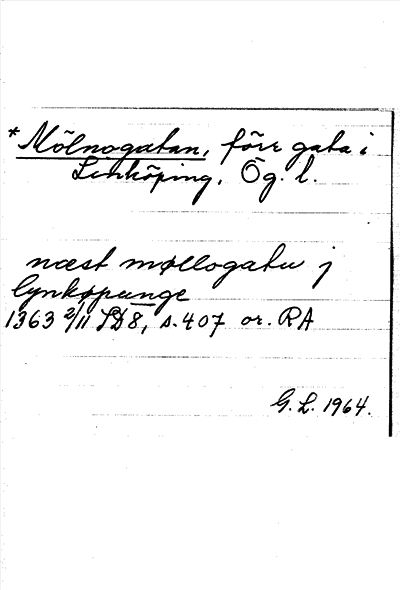 *Mölnogatan, förr gata i
Linköping, Ög. l.
næst møllogatu j
lynkøpunge
1363 2/11 SD 8, s. 407 or. RA
G. L. 1964.